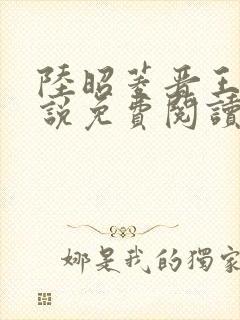 陸昭菱晉王
說免費閱讀
娜是我的獨家